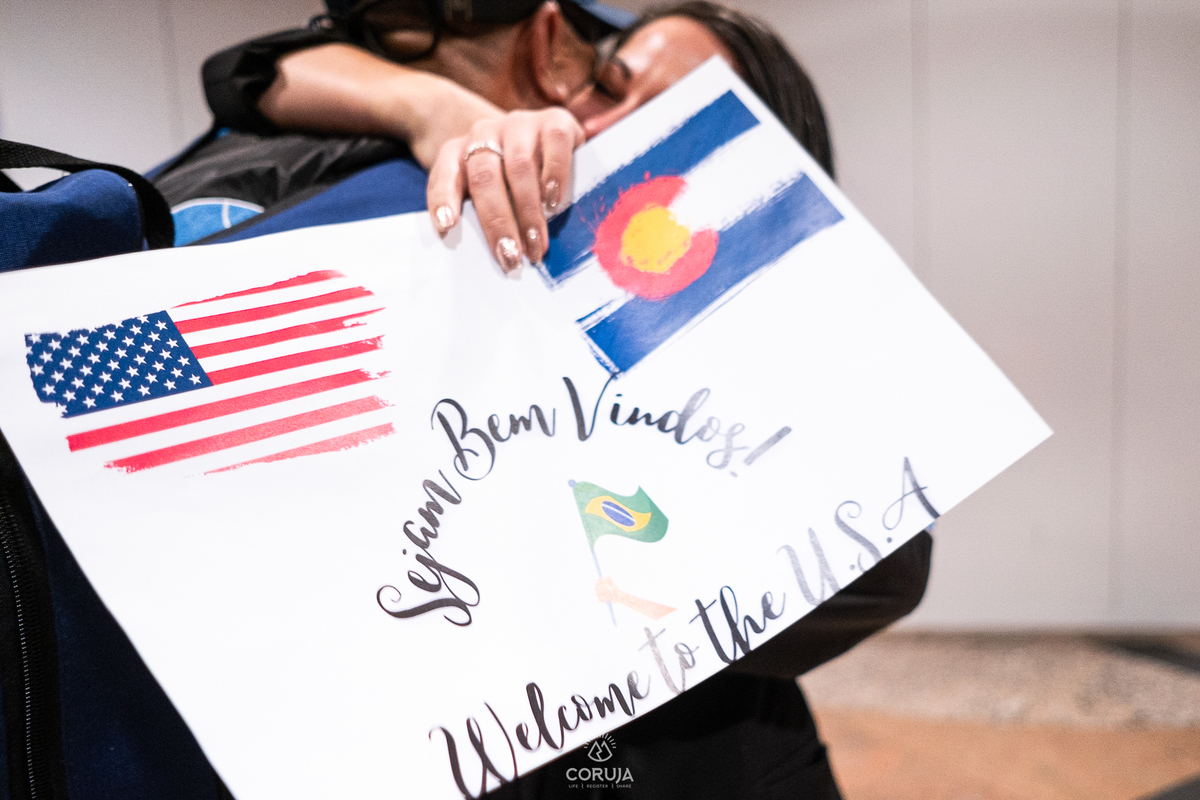 Sejam Bem Vindos!
Welcome to the U.S.A
CORUJA
LIFE | REGISTER | SHARE